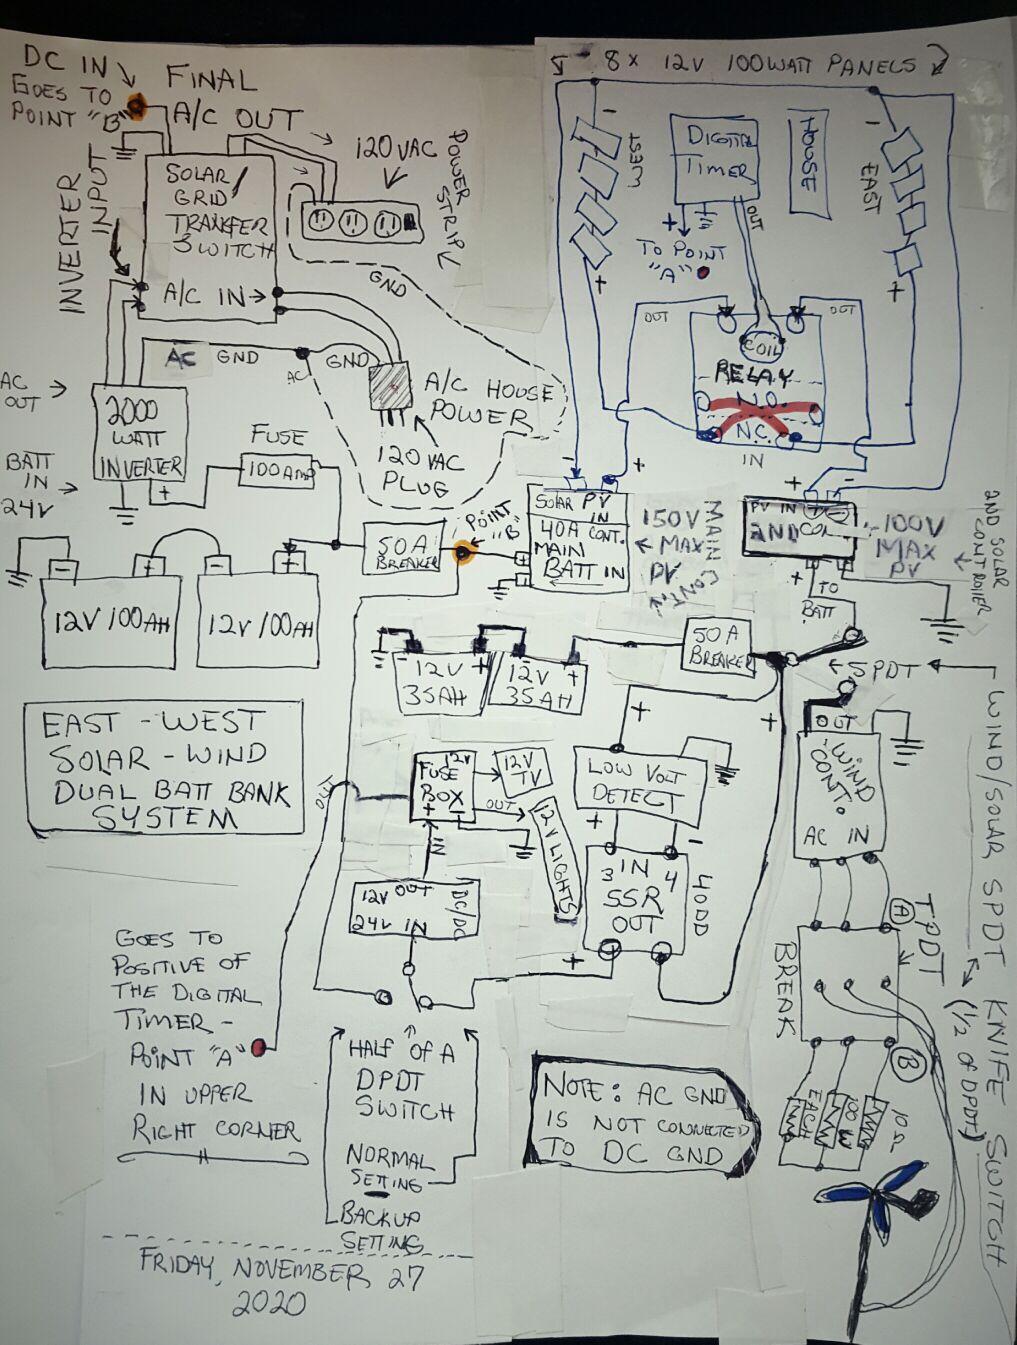 DC IN
GOES TO
POINT "B"
FINAL
A/C OUT
120 VAC
POWER
STRIP
8 x 12V 100WATT PANELS
WEST
-
+
DIGITAL
TIMER
OUT
+
TO POINT
"A"
HOUSE
EAST
-
+
INVERTER
INPUT
SOLAR/
GRID
TRANKFER
SWITCH
A/C IN
GND
AC GND
GND
AC
A/C HOUSE
POWER
120 VAC
PLUG
OUT
OUT
COIL
RELAY
N.O.
N.C.
IN
AC
OUT
2000
WATT
INVERTER
BATT
IN
24V
+
FUSE
100AMP
50A
BREAKER
POINT
"B"
-
+
SOLAR PV
IN
40A CONT.
MAIN
BATT IN
+
-
150V
MAX
PV
MAIN CONT.
+
-
PV IN
2ND
100V
MAX
PV
2ND SOLAR
CONTROLLER
+
TO
BATT
-
+
-
+
12V/100AH
12V/100AH
-
+
-
+
12V
35AH
12V
35AH
50A
BREAKER
SPDT
WIND/SOLAR SPDT KNIFE SWITCH
(1/2 OF DPDT)
EAST - WEST
SOLAR - WIND
DUAL BATT BANK
SYSTEM
12V
FUSE
BOX
+
-
OUT
IN
12V
TV
12V LIGHTS
+
+
LOW VOLT
DETECT
+
-
3 IN 4
SSR
OUT
40DD
+
OUT
WIND
CONT.
AC IN
12V OUT
24V IN
DC/DC
TPDT
A
BREAK
B
100W
EACH
10Ω
GOES TO
POSITIVE OF
THE DIGITAL
TIMER -
POINT "A"
IN UPPER
RIGHT CORNER
HALF OF A
DPDT
SWITCH
NORMAL
SETTING
BACKUP
SETTING
NOTE: AC GND
IS NOT CONNECTED
TO DC GND
FRIDAY, NOVEMBER 27
2020